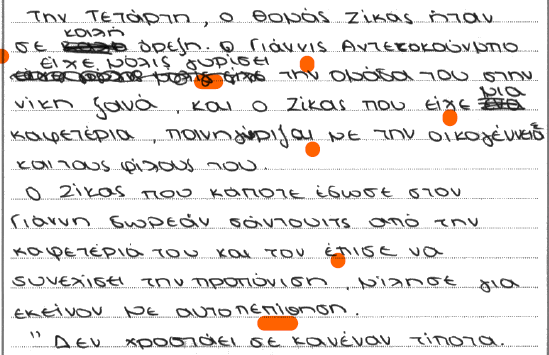 Την Τετάρτη, ο Θωμάς Ζίκας ήταν
σε καλή όρεξη. Ο Γιάννις Αντετοκούνμπο
είχε μόλις γυρίσει την ομάδα του στην
νίκη ξανά, και ο Ζίκας που είχε μια
καφετέρια, πανηγύριζαι με την οικογένεια
και τους φίλους του.
Ο Ζίκας που κάποτε έδωσε στον
Γιάννη δωρεάν σάντουιτς από την
καφετέριά του και τον έπισε να
συνεχίσει την προπόνιση, μίλησε για
εκείνον με αυτοπεπίθηση.
"Δεν χροστάει σε κανέναν τίποτα.